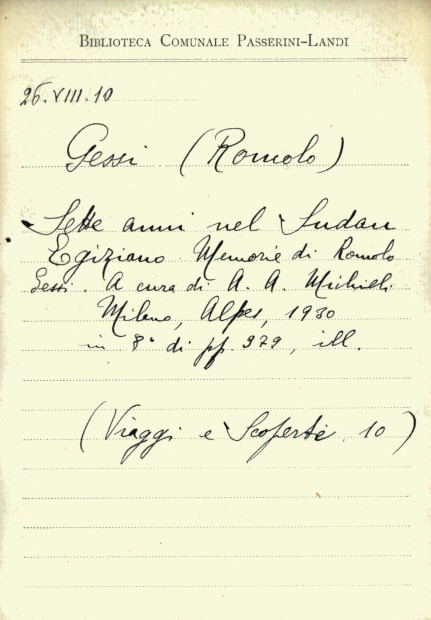 BIBLIOTECA COMUNALE PASSERINI-LANDI
26.VIII.10
Gessi (Romolo)
Sette anni nel Sudan
Egiziano Memorie di Romolo
Gessi. A cura di A. A. Michieli
Milano, Alpes, 1930
in 8° di pp. 379, ill.
(Viaggi e Scoperte, 10)